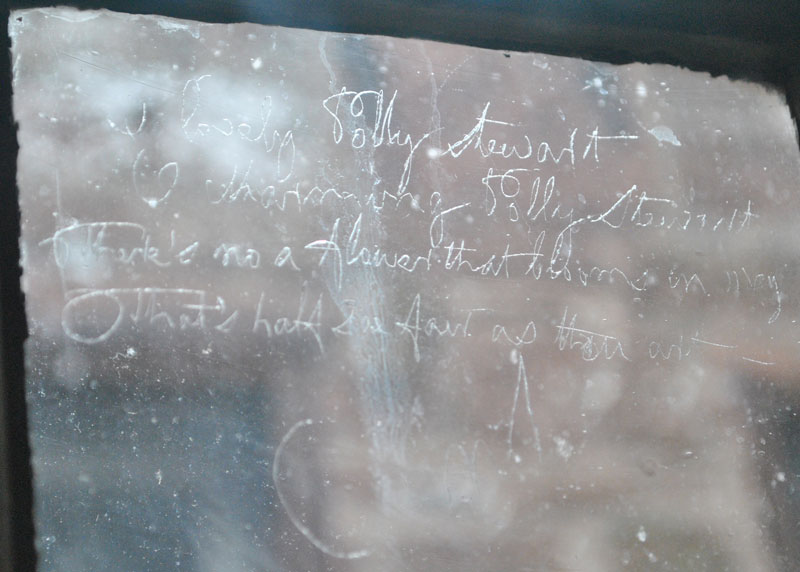 O lovely Polly Stewart
O charming Polly Stewart
There's no a flower that blooms in May
That's half sae fair as thou art